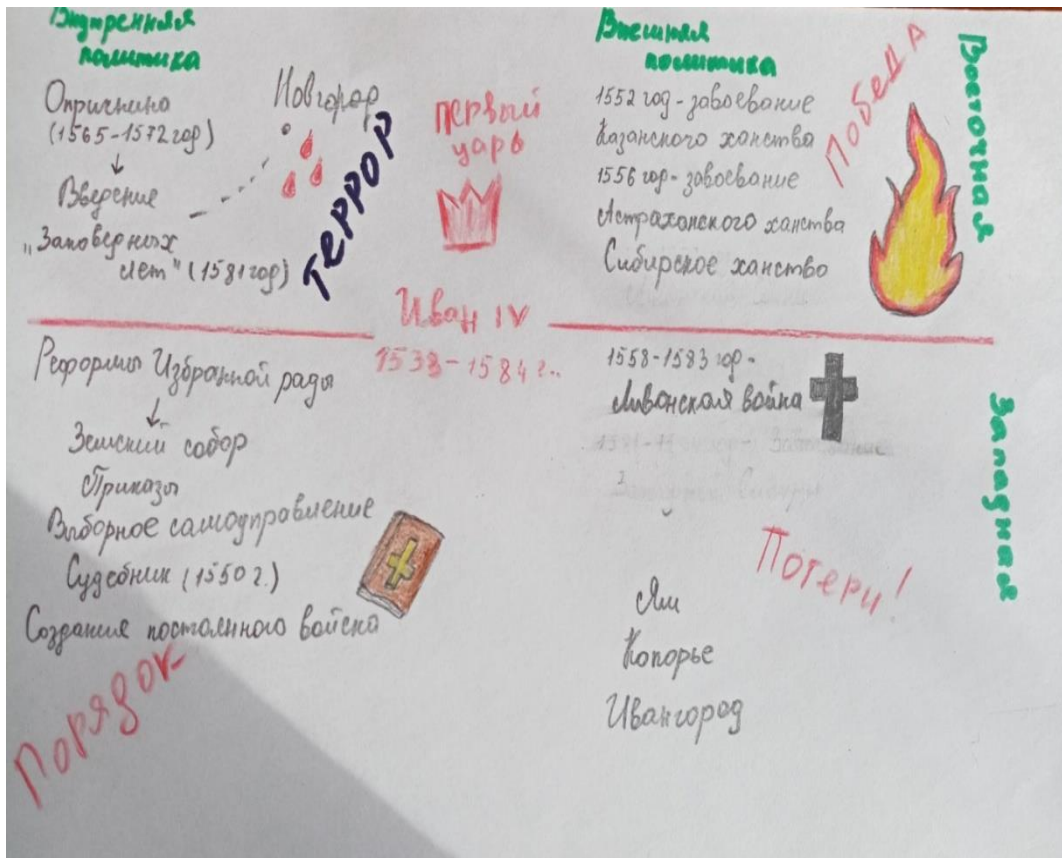 Внутренняя
политика
Опричнина
(1565-1572 год)
↓
Введение
„Заповедных
лет" (1581 год)
Новгород
ТЕРРОР
первый
царь
Иван IV
1533-1584 г..
Внешняя
политика
1552 год - завоевание
Казанского ханства
1556 год - завоевание
Астраханского ханства
Сибирское ханство
ПобеДА
Восточная
Реформы Избранной рады
↓
Земский собор
Приказы
Выборное самоуправление
Судебник (1550 г.)
Создания постоянного войска
Порядок
1558-1583 год -
Ливонская война
Потери!
Ям
Копорье
Ивангород
Западная